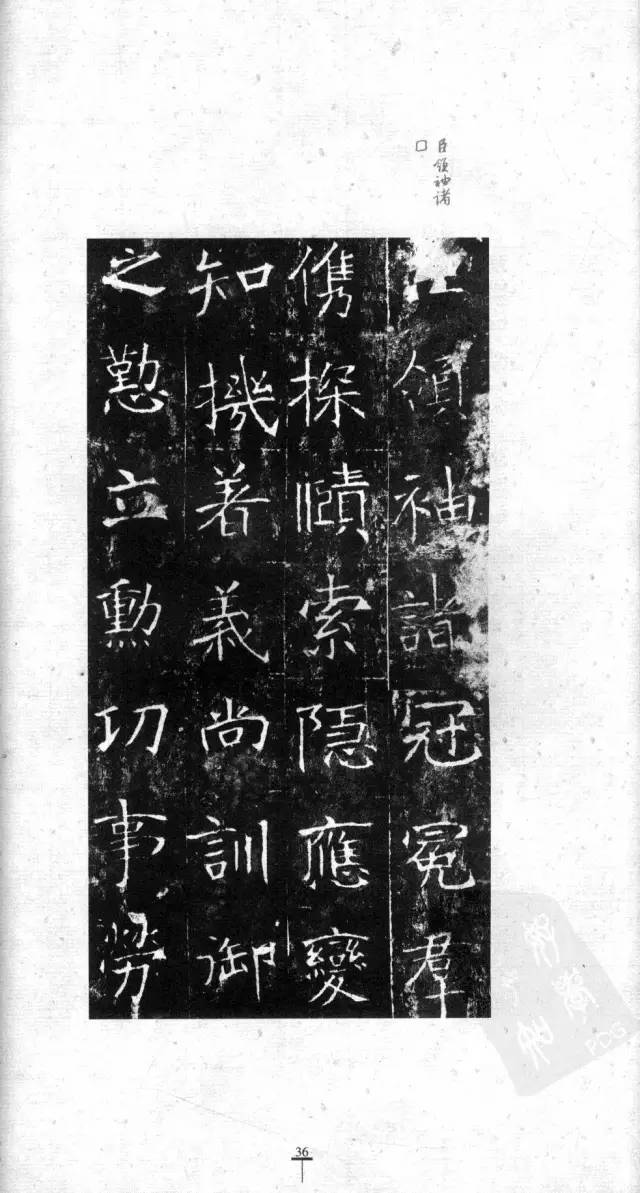 臣領袖诸
口
領袖諸冠冕羣
儁探賾索隱應變
知機著義尚訓御
之懃立勳功事勞
36
PDG